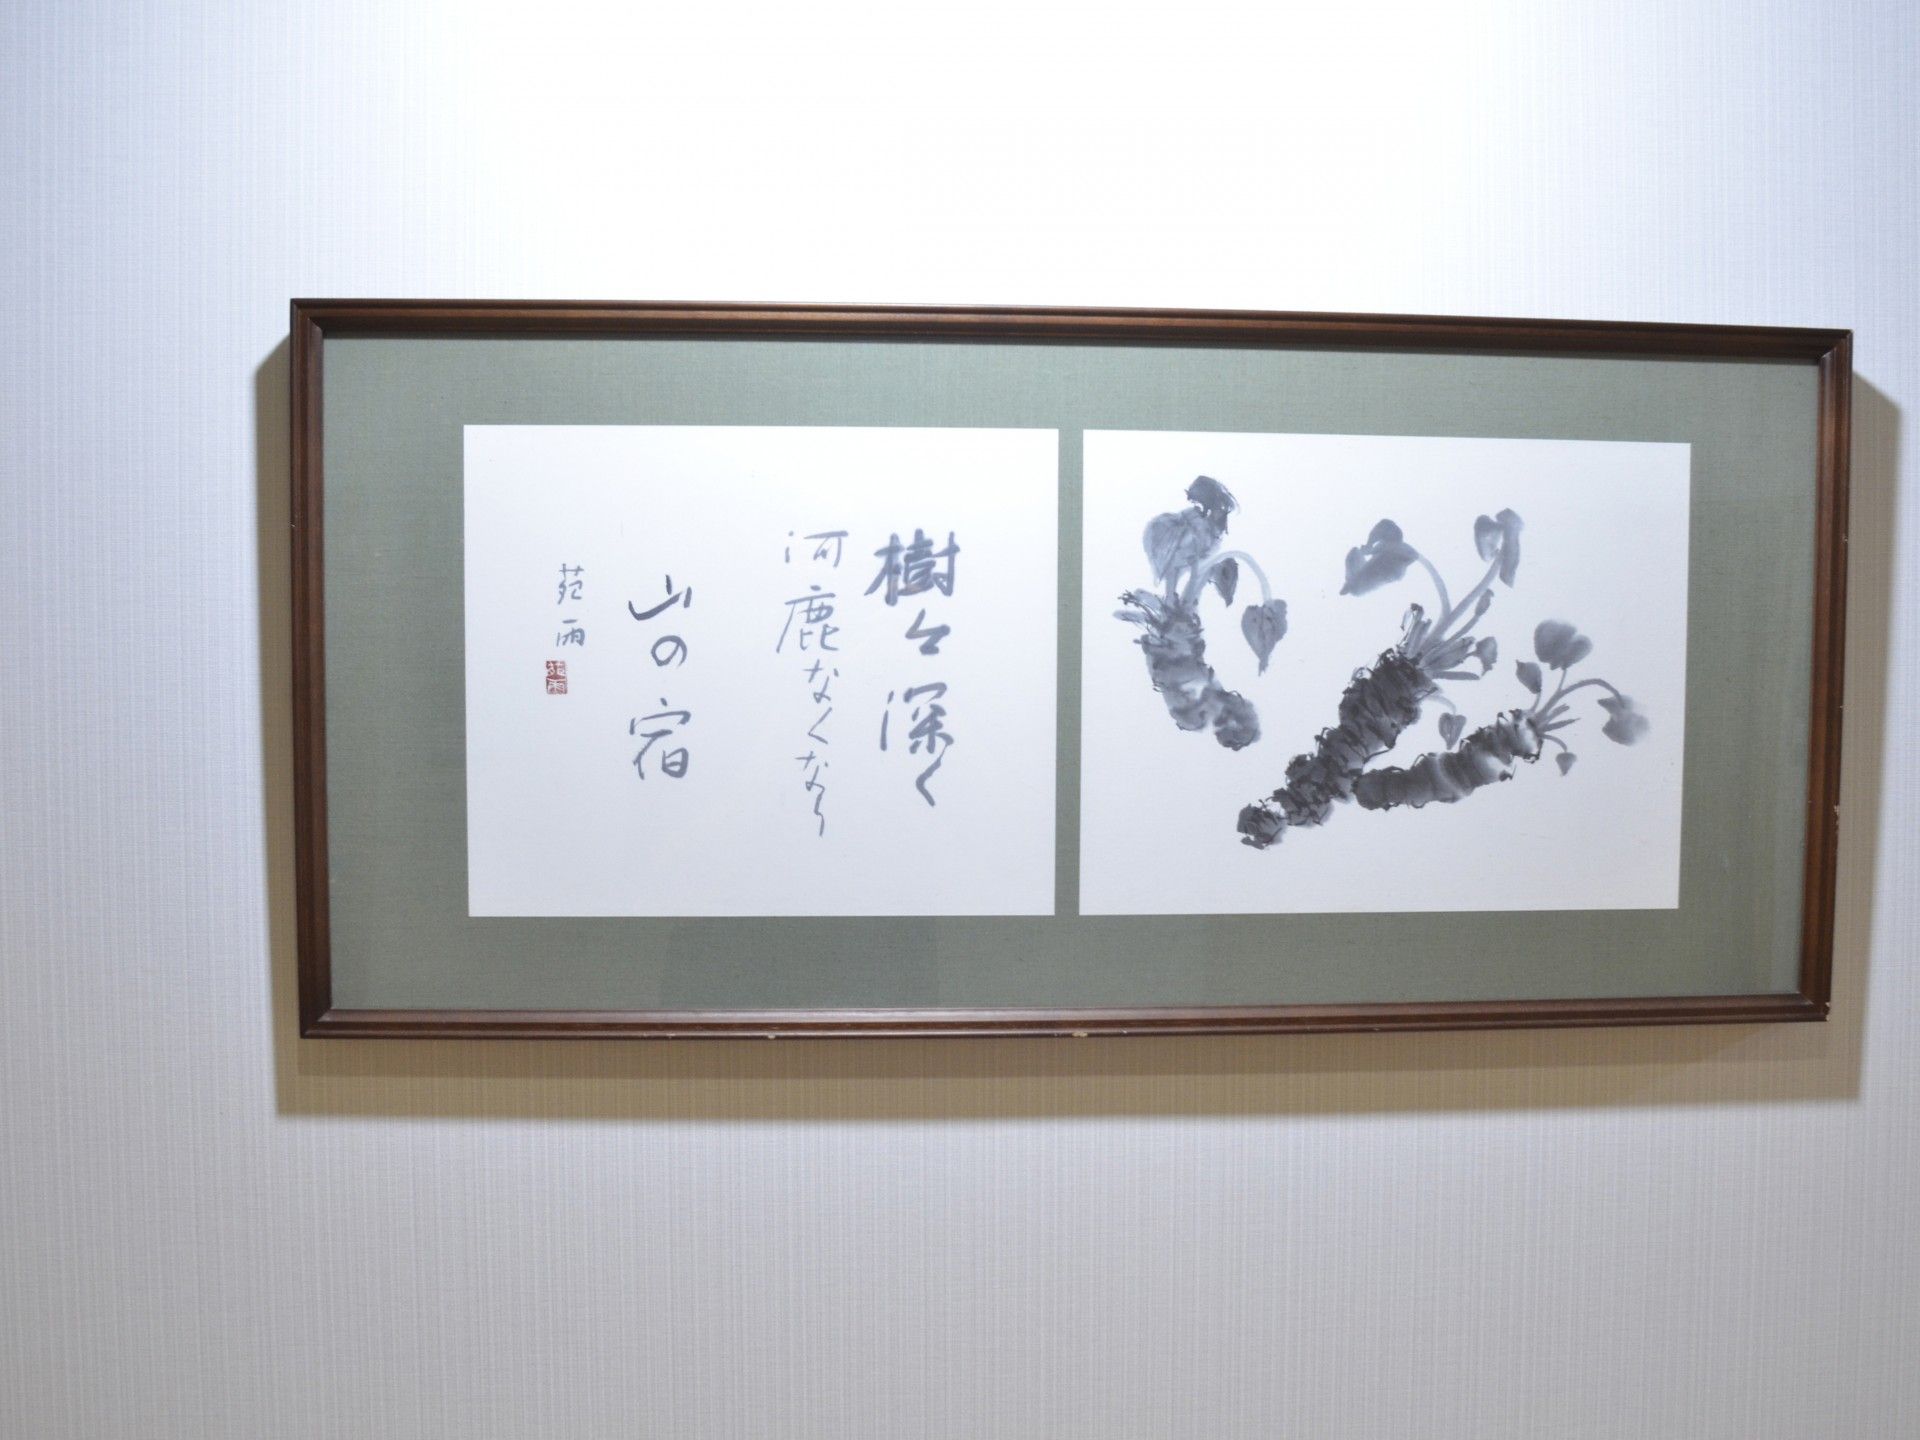 樹々深く
河鹿なくなり
山の宿
苑雨